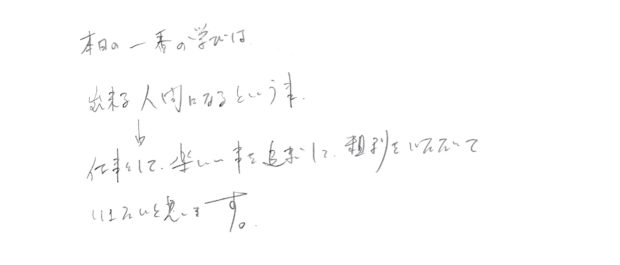 本日の一番の学びは
出来る人間になるという事.
↓
仕事をして、楽しい事を追求して、権利をいただいて
いきたいと思います。